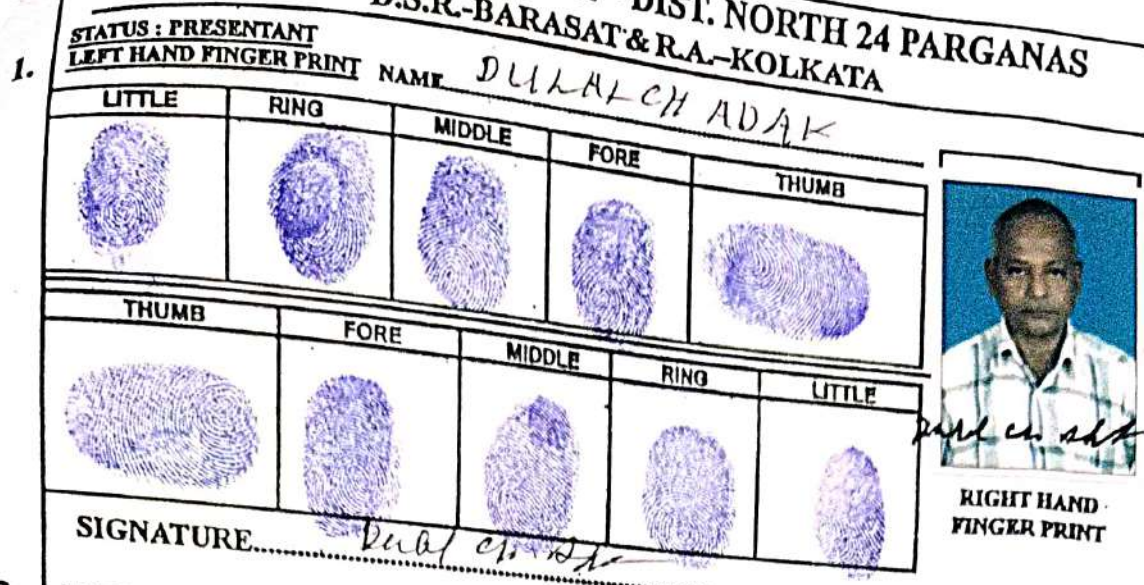 DIST. NORTH 24 PARGANAS
D.S.R.-BARASAT & R.A.-KOLKATA
STATUS : PRESENTANT
1. LEFT HAND FINGER PRINT NAME DULAL CH ADAK
LITTLE RING MIDDLE FORE THUMB
THUMB FORE MIDDLE RING LITTLE
RIGHT HAND
FINGER PRINT
SIGNATURE